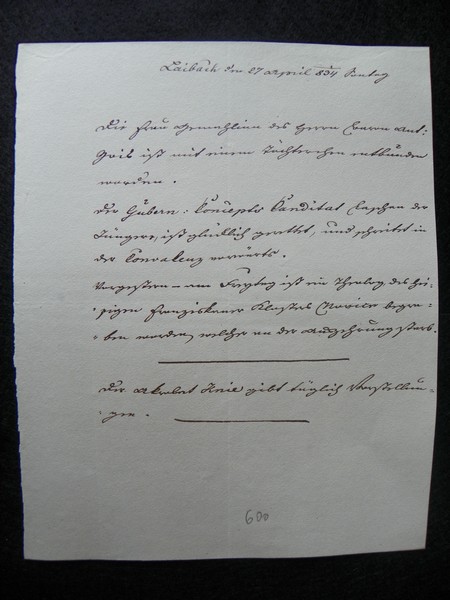 Laibach den 27 April 834 Sontag
Die Frau Gemahlinn des Herrn Baron Ant:
ist mit einem Töchterchen entbunden
worden.
Der Gubern: Concepts Kanditat Laschan der
Jüngere, ist glücklich gerettet, und schreitet in
der Convalenz vorwärts.
Vorgestern – am Freytag ist ein Theolog des hie-
sigen Franziskaner Klosters Novize begra-
ben worden, welcher an der Auszehrung starb.
Der Akrobat Knie gibt täglich Vorstellun-
gen.
600